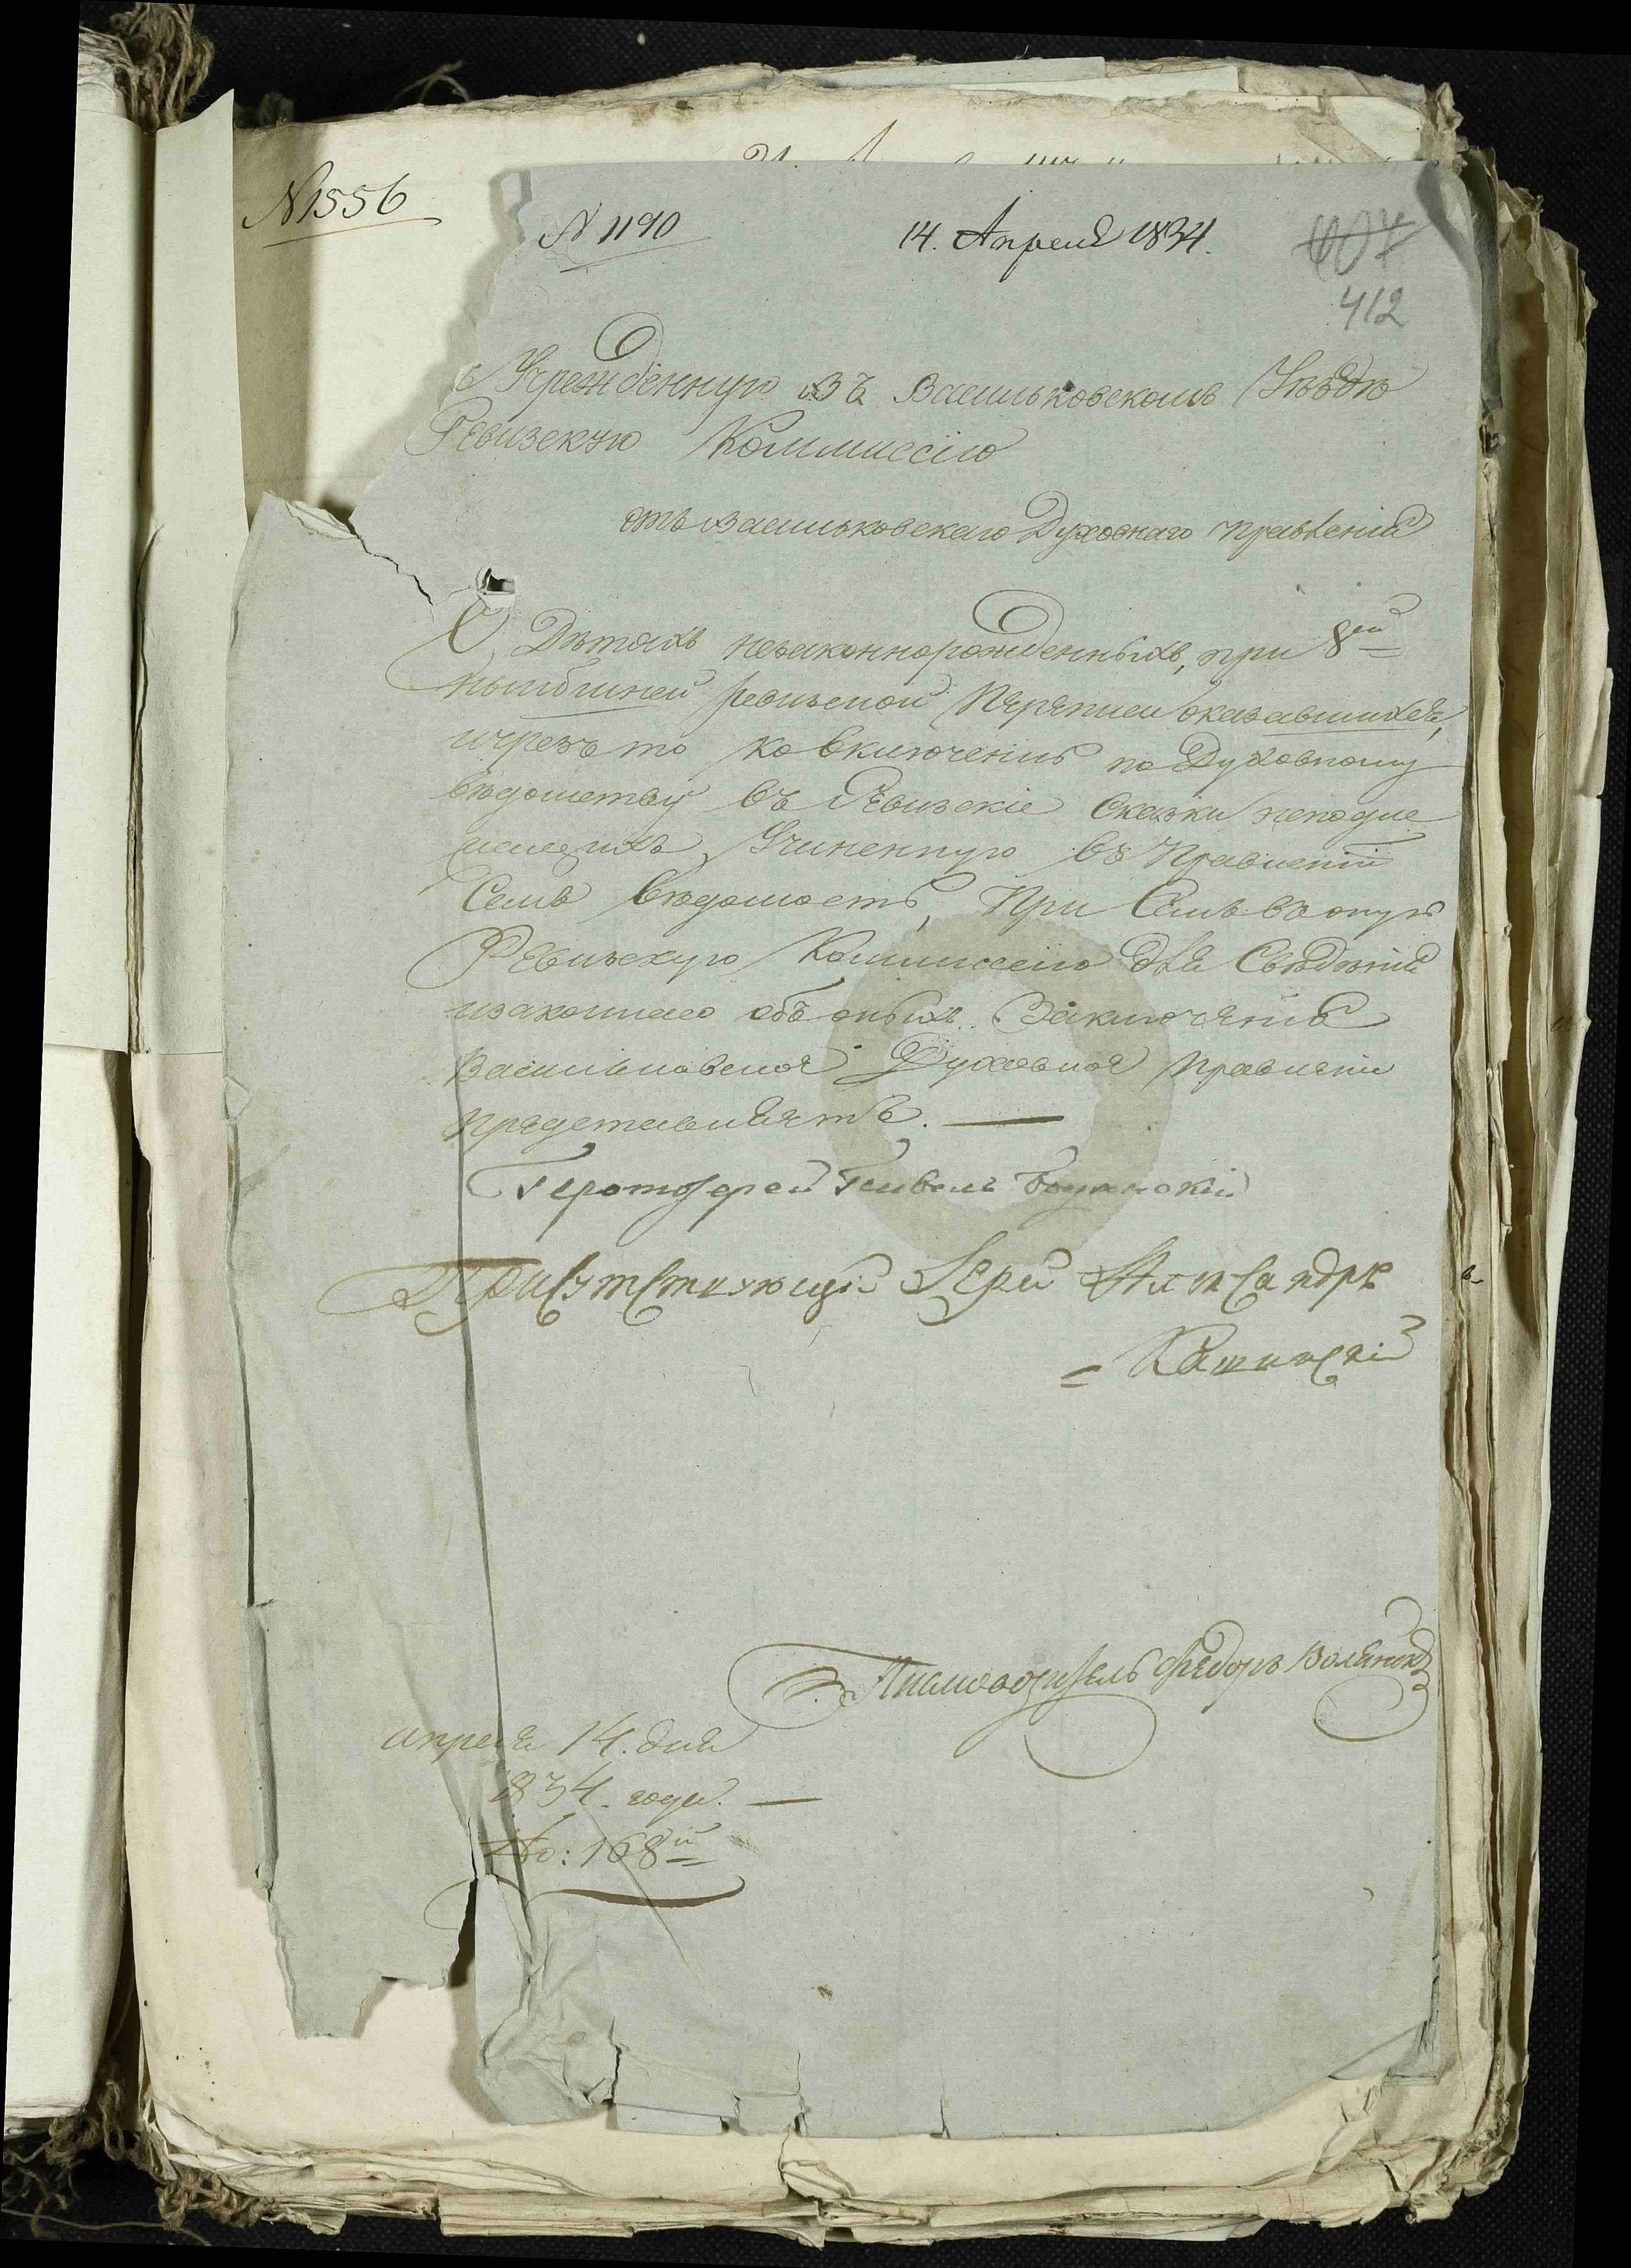 № 1556
№ 1190 14. Апреля 1834.
407
412
в Учрежденную въ Васильковскомъ Уѣздѣ
Ревизскую Коммиссію
отъ Васильковскаго Духовнаго правленія
О Дѣтяхъ незаконнорожденныхъ, при 8ей
нынѣшней ревизской Переписи оказавшихся,
ичрезъ то ко включенію по Духовному
вѣдомству въ Ревизскіе Сказки неподле
жащихъ, Учиненную въ Правленіи
Семъ вѣдомость, При Семъ въ оную
Ревизскую Коммиссію для Свѣдѣнія
изаконнаго обѣ оныхъ Заключенія
Васильковское Духовное Правленіе
представляетъ.
Протоіерей Павелъ
Присутствующій Іерей Александръ
Письмоводитель Федоръ
апреля 14. дня
1834. года.
№: 168й